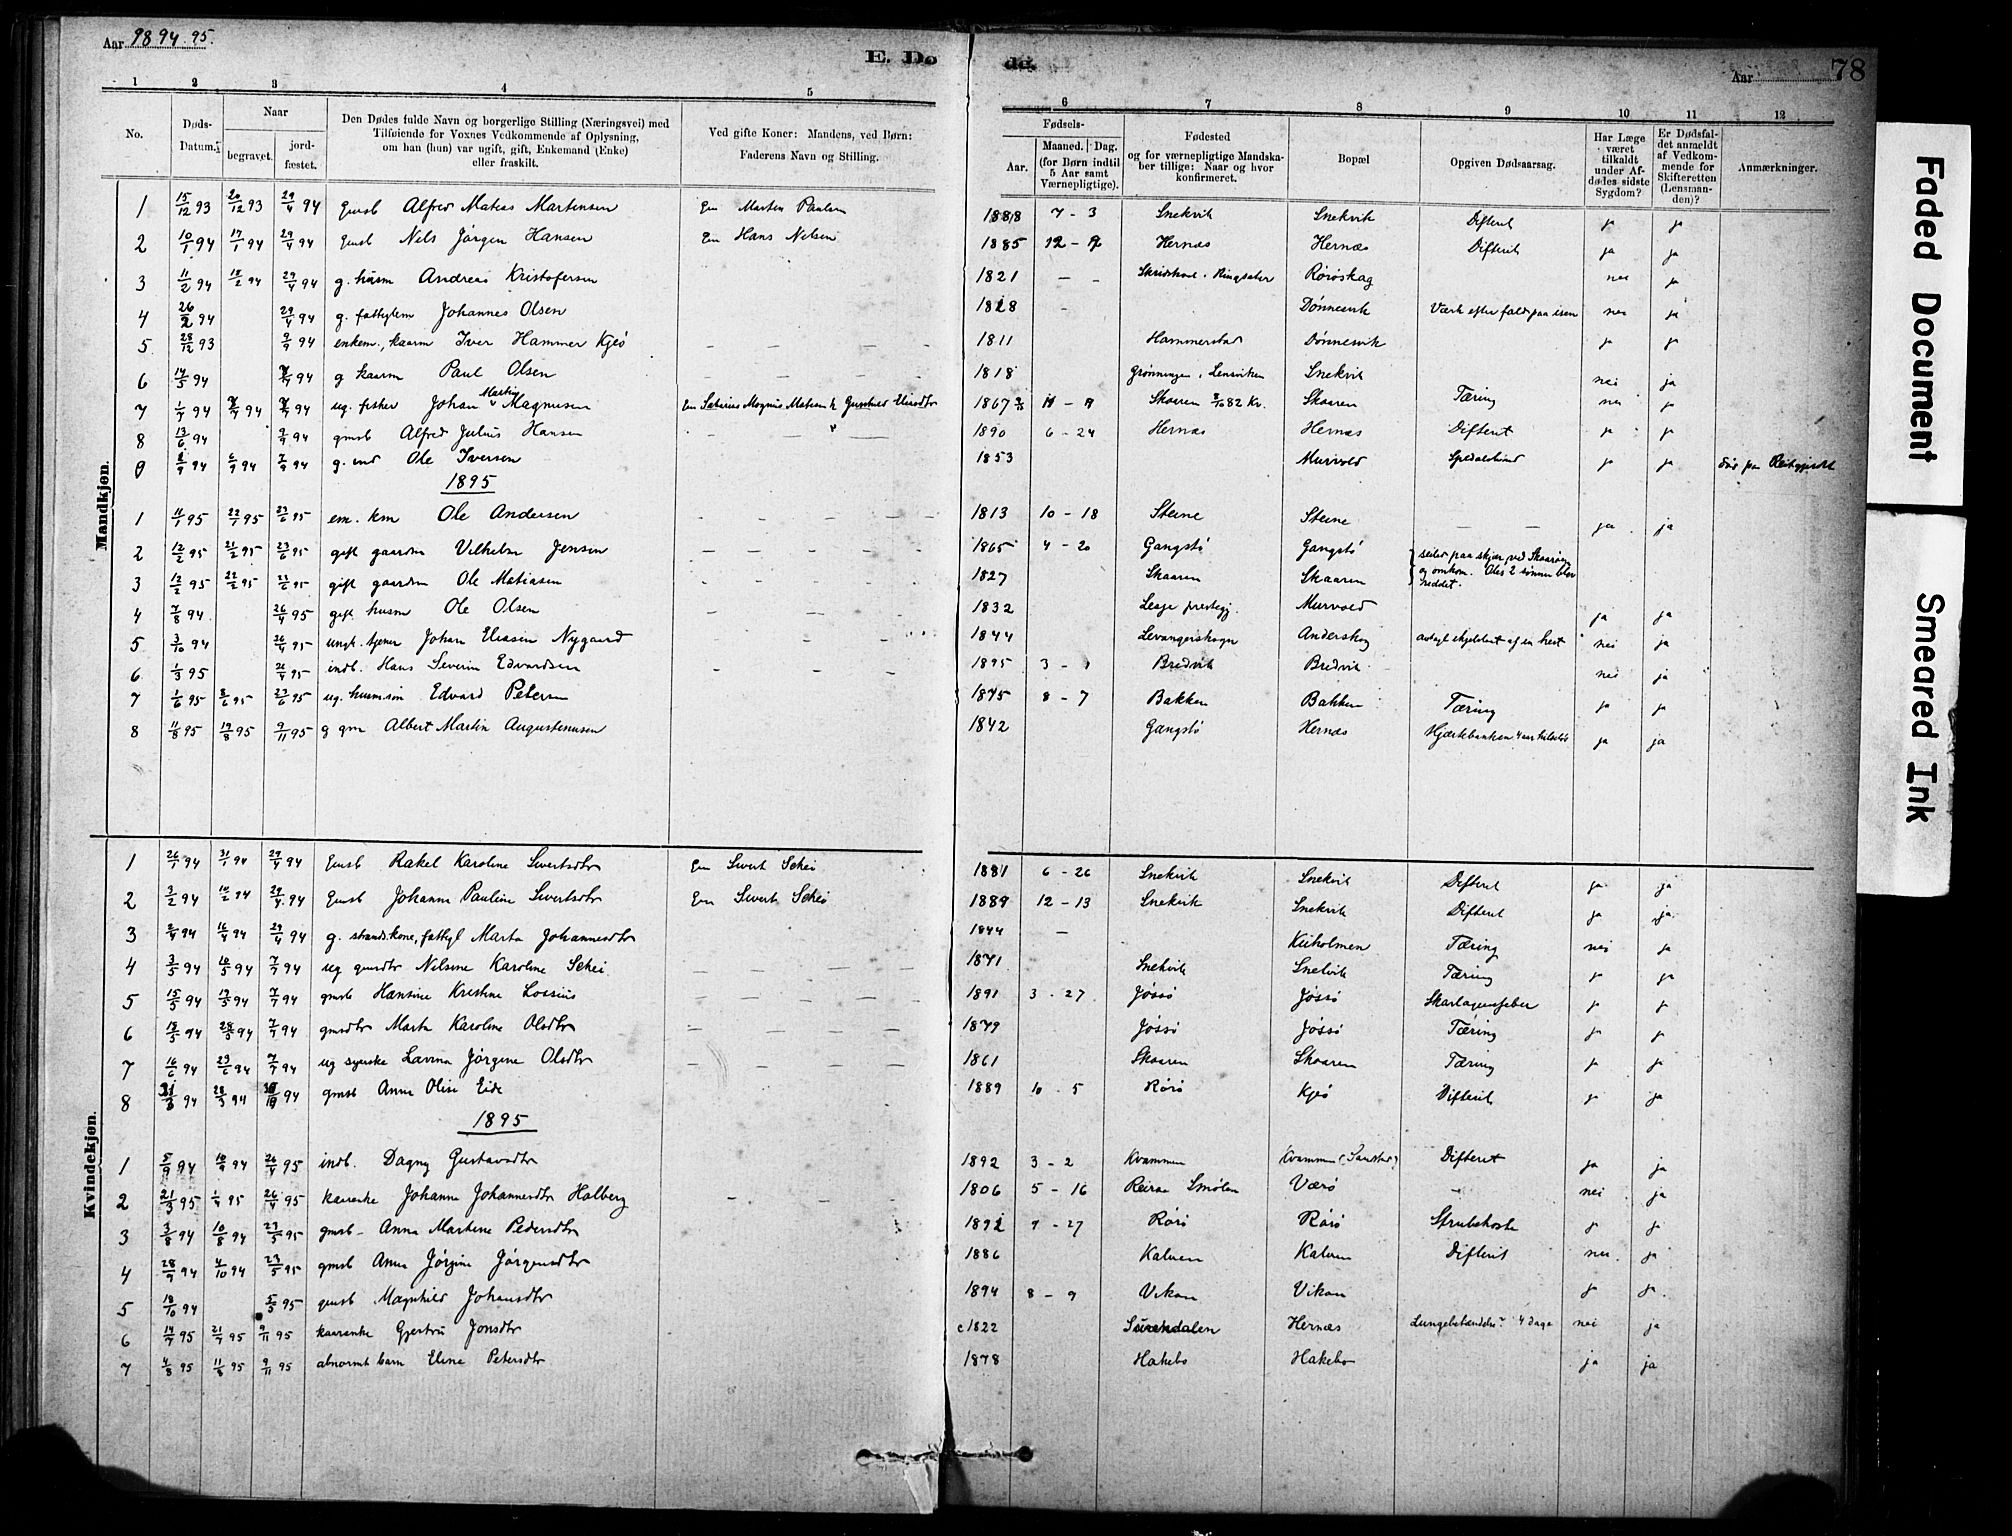 Aar 1894.95.
E. Døde.
Aar 78
1 2 3 4 5 6 7 8 9 10 11 12
No.
Døds-Datum.
Naar
begravet.
jord-fæstet.
Den Dødes fulde Navn og borgerlige Stilling (Næringsvei) med
Tilføiende for Voxnes Vedkommende af Oplysning,
om han (hun) var ugift, gift, Enkemand (Enke)
eller fraskilt.
Ved gifte Koner: Mandens, ved Børn:
Faderens Navn og Stilling.
Fødsels-
Aar.
Maaned. Dag.
(for Børn indtil
5 Aar samt
Værnepligtige).
Fødested
og for værnepligtige Mandska-
ber tillige: Naar og hvor
konfirmeret.
Bopæl
Opgiven Dødsaarsag.
Har Læge
været
tilkaldt
under Af-
dødes sidste
Sygdom?
Er Dødsfal-
det anmeldt
af Vedkom-
mende for
Skifteretten
(Lensman-
den)?
Anmærkninger.
Mandkjøn.
1 15/12 93 20/12 93 29/4 94 Gmsb Alfred Matias Martensen Em Morten Paulsen 1888 7 - 3 Snekvik Snekvik Difterit ja ja
2 10/1 94 17/1 94 29/4 94 Gmsb Nels Jørgen Hansen Em Hans Nelsen 1885 12 - 9 Hernæs Hernæs Difterit ja ja
3 11/2 94 18/2 94 29/4 94 g. husm Andreas Kristofersen 1821 - - Ringsaker Rørøskag nei ja
4 26/2 94 29/4 94 g. fattiglem Johannes Olsen 1828 - Dønnesvik Værk efter fald paa isen nei ja
5 28/12 93 9/9 94 enkem., kaarm Iver Hammer Kjeø 1811 Hammerstad Dønnesvik ja ja
6 14/5 94 7/7 94 g kaarm Paul Olsen 1818 Grønningen, Lensviken Snekvik nei ja
7 1/7 94 7/7 94 7/7 94 ug. fisker Johan Martin Magnusen 1867 Skaaren 82 Kr. Skaaren Tæring nei ja
8 13/6 94 9/9 94 gmsb Alfred Julius Hansen 1890 6 - 24 Hernæs Hernæs Difterit ja ja
9 2/9 94 6/9 94 7/9 94 g. ind Ole Iversen 1853 Murvold Spedalskhed ja ja død paa Reitgjerdet
1895
1 11/1 95 22/1 95 23/6 95 em. km Ole Andersen 1813 10 - 18 Steine Steine - - ja ja
2 12/2 95 21/2 95 23/6 95 gift gaardm Vilhelm Jensen 1865 4 - 20 Gangstø Gangstø seiled paa skjær ved Skaarøen
3 12/2 95 22/2 95 23/6 95 gift gaardm Ole Matiasen 1827 Skaaren Skaaren og omkom. Oles 2 sønner blev reddet.
4 7/8 94 26/4 95 gift husm Ole Olsen 1832 Lesje prestegj. Murvold ja ja
5 3/10 94 26/4 95 ungk. tjener Johan Eliasen Nygaard 1844 Levangerskogn Anderskog af en hest nei ja
6 1/3 95 26/4 95 indb. Hans Severin Edvardsen 1895 3 - 1 Bredvik Bredvik nei ja
7 1/6 95 8/6 95 23/6 95 ug. husm.søn Edvard Petersen 1875 8 - 7 Bakken Bakken Tæring ja ja
8 11/8 95 19/8 95 9/11 95 g gm Albert Martin Augustinusen 1842 Gangstø Hernæs Hjertebanken 4 aar ja ja
Kvindekjøn.
1 26/1 94 31/1 94 29/4 94 Gmsb Rakel Karoline Sivertsdtr Em Sivert Schei 1881 6 - 26 Snekvik Snekvik Difterit ja ja
2 3/2 94 10/2 94 29/4 94 Gmsb Johanne Pauline Sivertsdtr Em Sivert Schei 1889 12 - 13 Snekvik Snekvik Difterit ja ja
3 8/4 94 16/4 94 29/4 94 g. strands.kone, fattigl Marta Johannesdtr 1844 - Kiiholmen Tæring nei ja
4 3/5 94 10/5 94 7/7 94 ug gmdtr Nilsine Karoline Schei 1871 Snekvik Snekvik Tæring ja ja
5 15/5 94 19/5 94 7/7 94 gmsb Hansine Kristine Lossius 1891 3 - 27 Jøssø Jøssø Skarlagensfeber ja ja
6 18/5 94 28/5 94 7/7 94 gmdtr Marta Karoline Olsdtr 1879 Jøssø Jøssø Tæring ja ja
7 16/6 94 23/6 94 7/7 94 ug syerske Lavina Jørgine Olsdtr 1861 Skaaren Skaaren Tæring ja ja
8 94 28/3 94 94 gmsb Anne Olise Eide 1889 10 - 5 Rørø Kjeø Difterit ja ja
1895
1 5/9 94 10/9 94 26/4 95 indb. Dagny Gustavsdtr 1892 3 - 2 Kvammen Kvammen (Sandstad) Difterit ja ja
2 21/3 95 1/4 95 26/4 95 kaarenke Johanne Johannesdtr Halberg 1806 5 - 16 Reiran Smølen Værø - nei ja
3 3/8 94 10/8 94 23/5 95 gmsb Anna Martine Pedersdtr 1892 9 - 27 Rørø Rørø Strubehoste ja ja
4 28/9 94 4/10 94 23/5 95 gmsb Anna Jørgine Jørgensdtr 1886 Kalven Kalven Difterit nei ja
5 18/10 94 5/5 95 gmsb Magnhild Johansdtr 1894 8 - 9 Vikan Vikan ja ja
6 14/7 95 21/7 95 9/11 95 kaarenke Gjertru Jonsdtr c1822 Surendalen Hernæs Lungebetændelse 4 dage nei ja
7 4/8 95 11/8 95 9/11 95 abnormt barn Eline Petersdtr 1878 Hakebo Hakebo ja ja
Faded Document
Smeared Ink